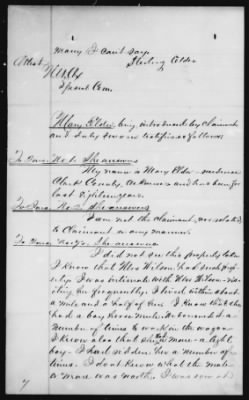 many I cant say.
Sterling Elder
Attest
Special Com.
Mary Elder, being introduced by claimant
and duly sworn testifies as follows:
To Inter. No 1. She answers
My name is Mary Elder. residence
Clark County, Arkansas and has been for
last Eighteen years.
To Inter. No 2. She answers
I am not the claimant, nor related
to Claimant in any manner.
To Inter. No She answers
I did not see this property taken
I know that Mrs Wilson had such prop-
erty. I was intimate with Mrs Wilson
her frequently. I lived within about
a mile and a half of her. I know that she
had a bay horse mule. It came a
number of times to work in the wagon
I know also that she mare a light
bay. I had ridden her a number of
times. I do not know what the mule
or mare was worth. I was not at